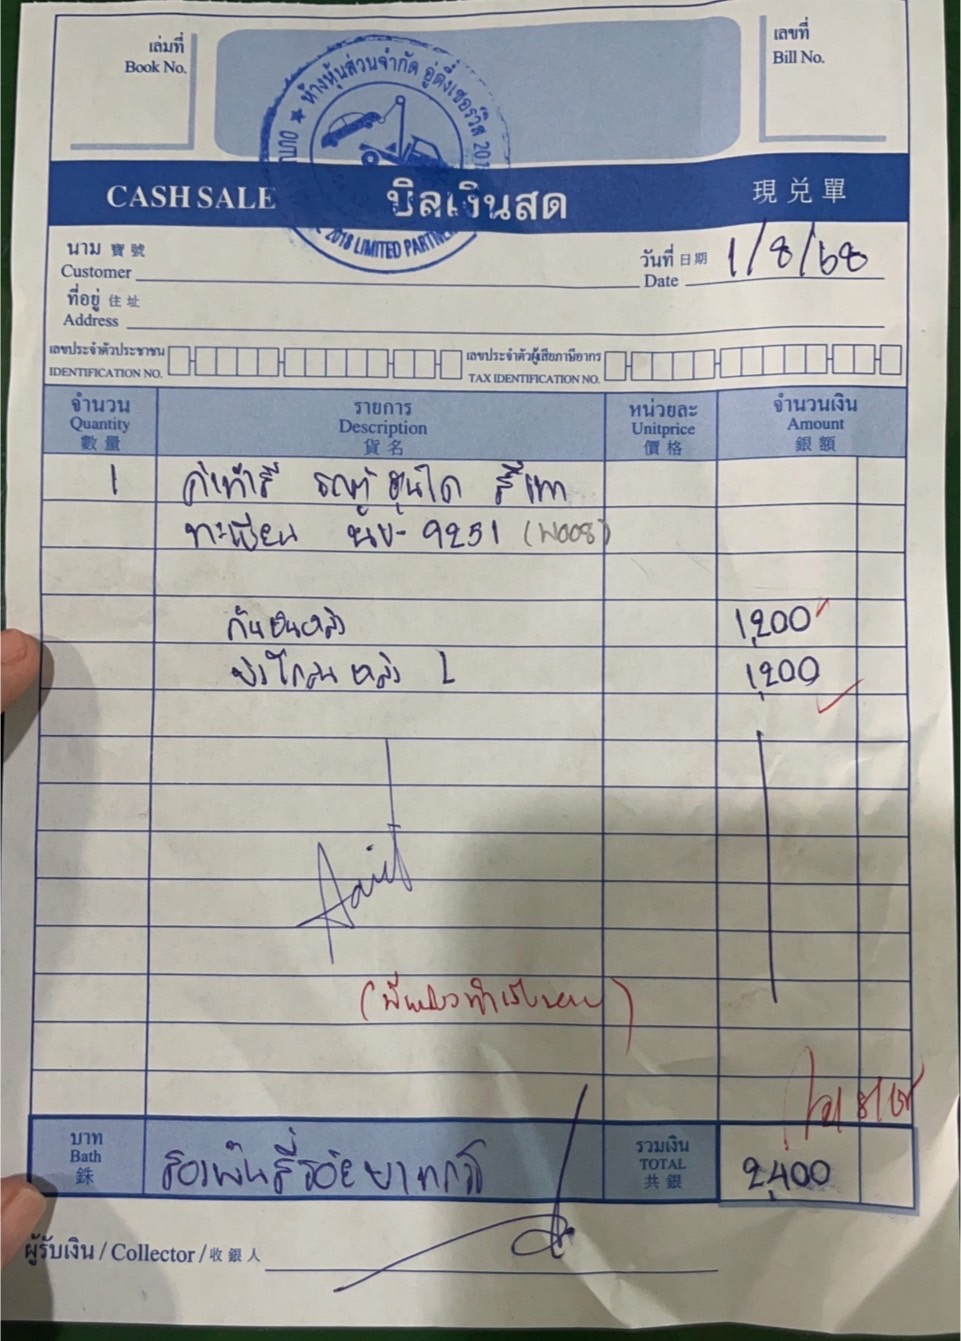 เล่มที่
Book No.
เลขที่
Bill No.
ห้างหุ้นส่วนจำกัด อู่ตึ๋งเซอร์วิส 201
2018 LIMITED PARTNER
CASH SALE บิลเงินสด 現兌單
นาม 寶號
Customer
วันที่ 日期
Date 1/8/68
ที่อยู่ 住址
Address
เลขประจำตัวประชาชน
IDENTIFICATION NO.
เลขประจำตัวผู้เสียภาษีอากร
TAX IDENTIFICATION NO.
จำนวน รายการ หน่วยละ จำนวนเงิน
Quantity Description Unitprice Amount
數量 貨名 價格 銀額
1 ค่าทำสี รถตู้ ฮุนได สีเทา
ทะเบียน 9251 (W008)
กันชนหลัง 1,200
บังโคลนหลัง L 1,200
บาท
Bath
銖
สองพันสี่ร้อยบาทถ้วน
รวมเงิน
TOTAL
共銀
2,400
ผู้รับเงิน / Collector / 收銀人